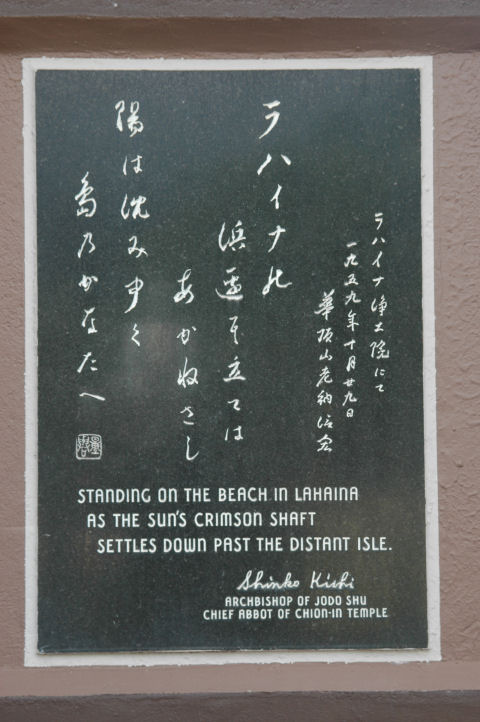 ラハイナ浄土院にて
一九五九年十月廿九日
華頂山老衲信宏
ラハイナの
浜邊に立ては
あかねさし
陽は沈みゆく
島乃かなたへ
STANDING ON THE BEACH IN LAHAINA
AS THE SUN'S CRIMSON SHAFT
SETTLES DOWN PAST THE DISTANT ISLE.
Shinko Kishi
ARCHBISHOP OF JODO SHU
CHIEF ABBOT OF CHION-IN TEMPLE